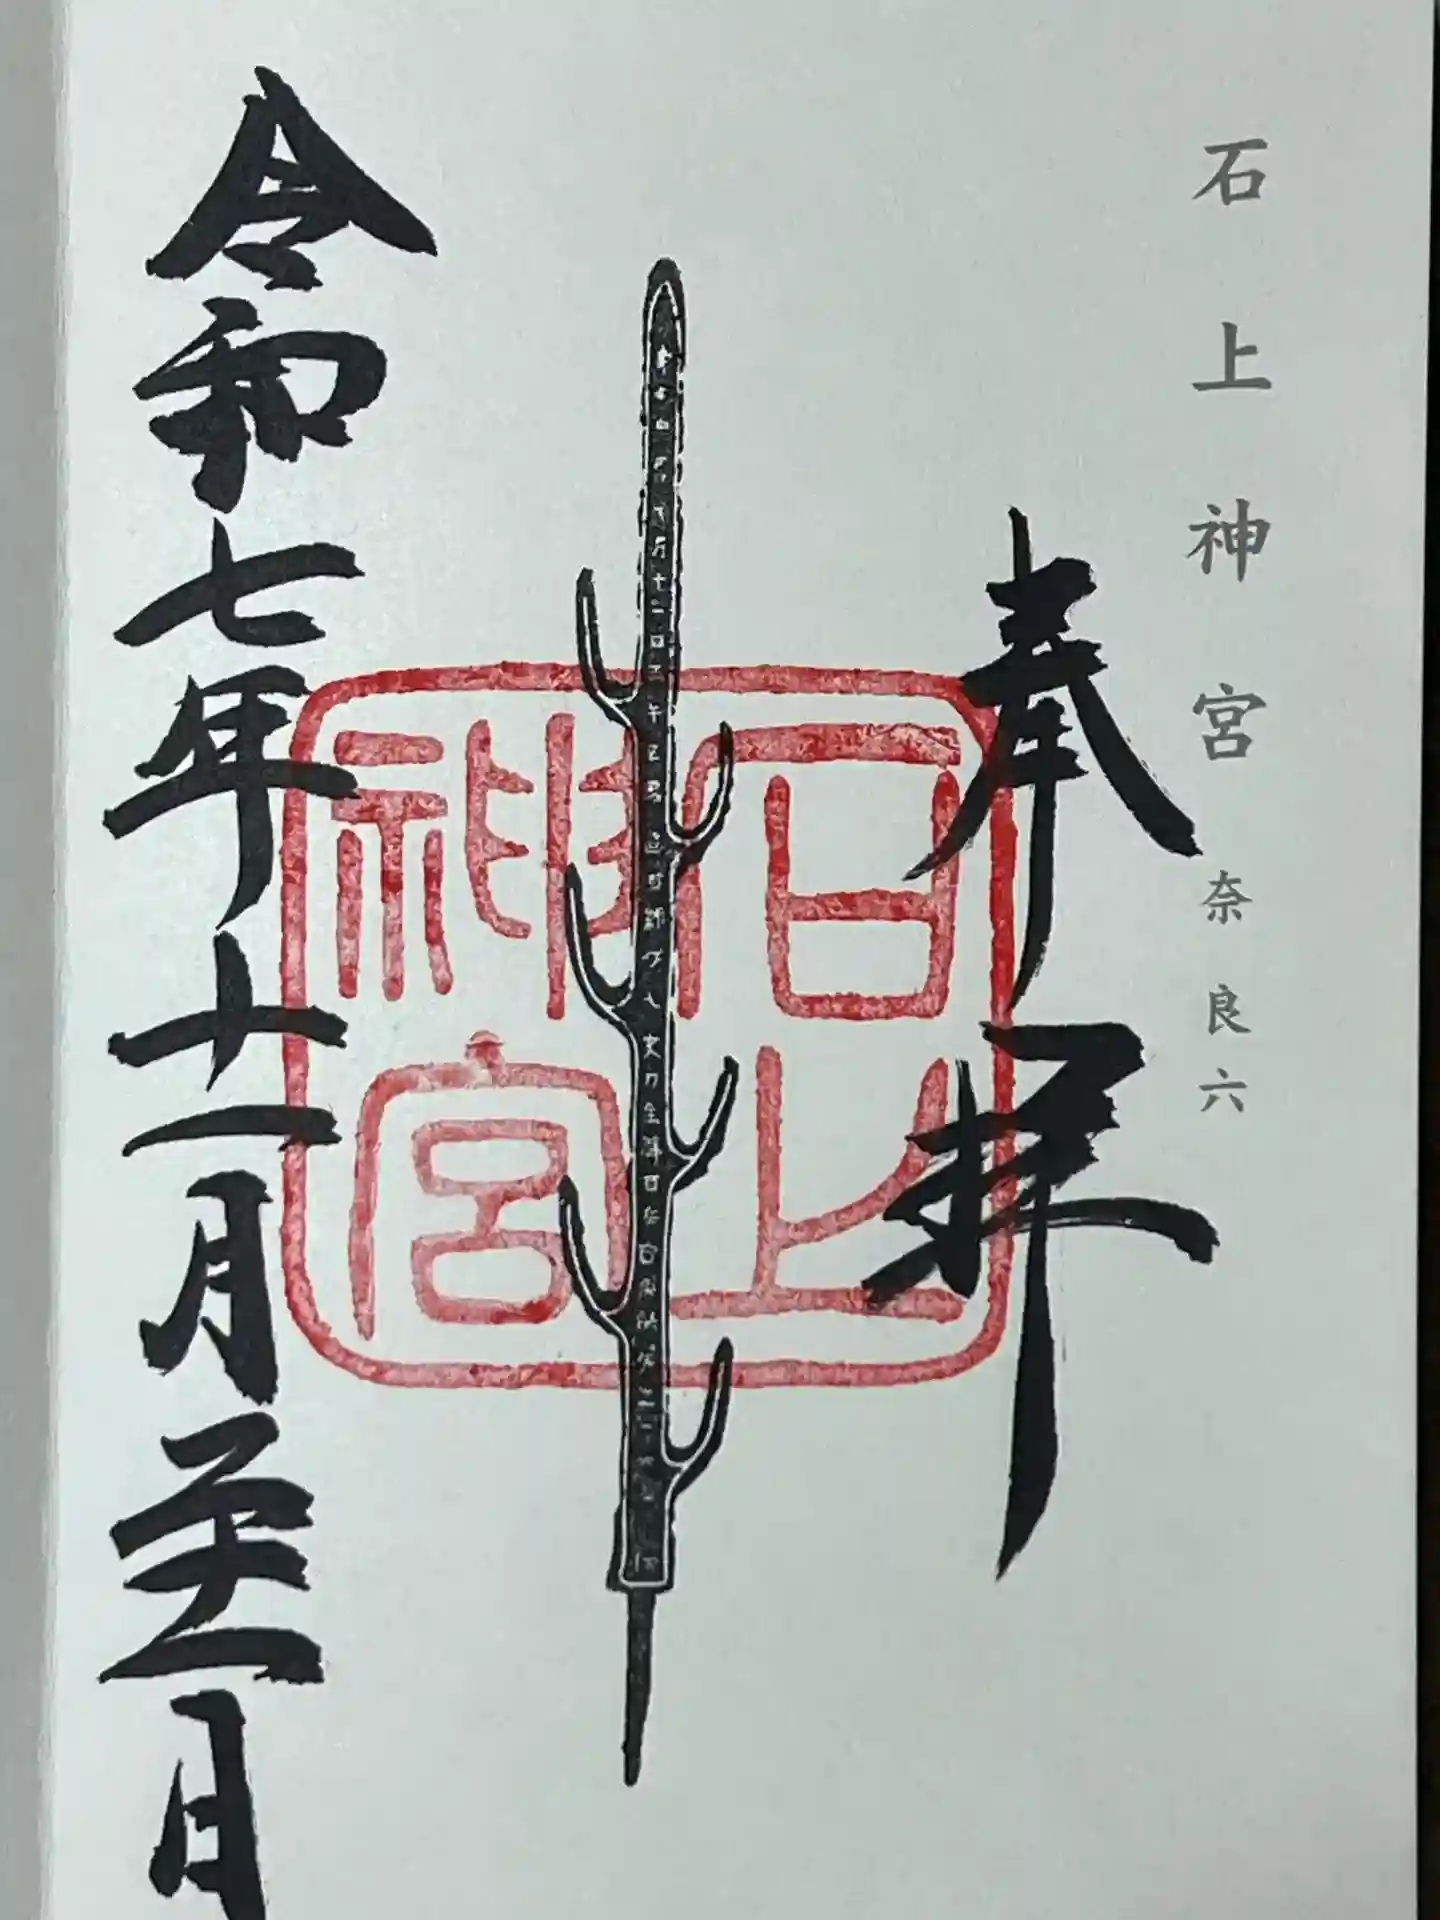 石上神宮 奈良六
奉拝
石上
神宮
令和七年十一月二十一日